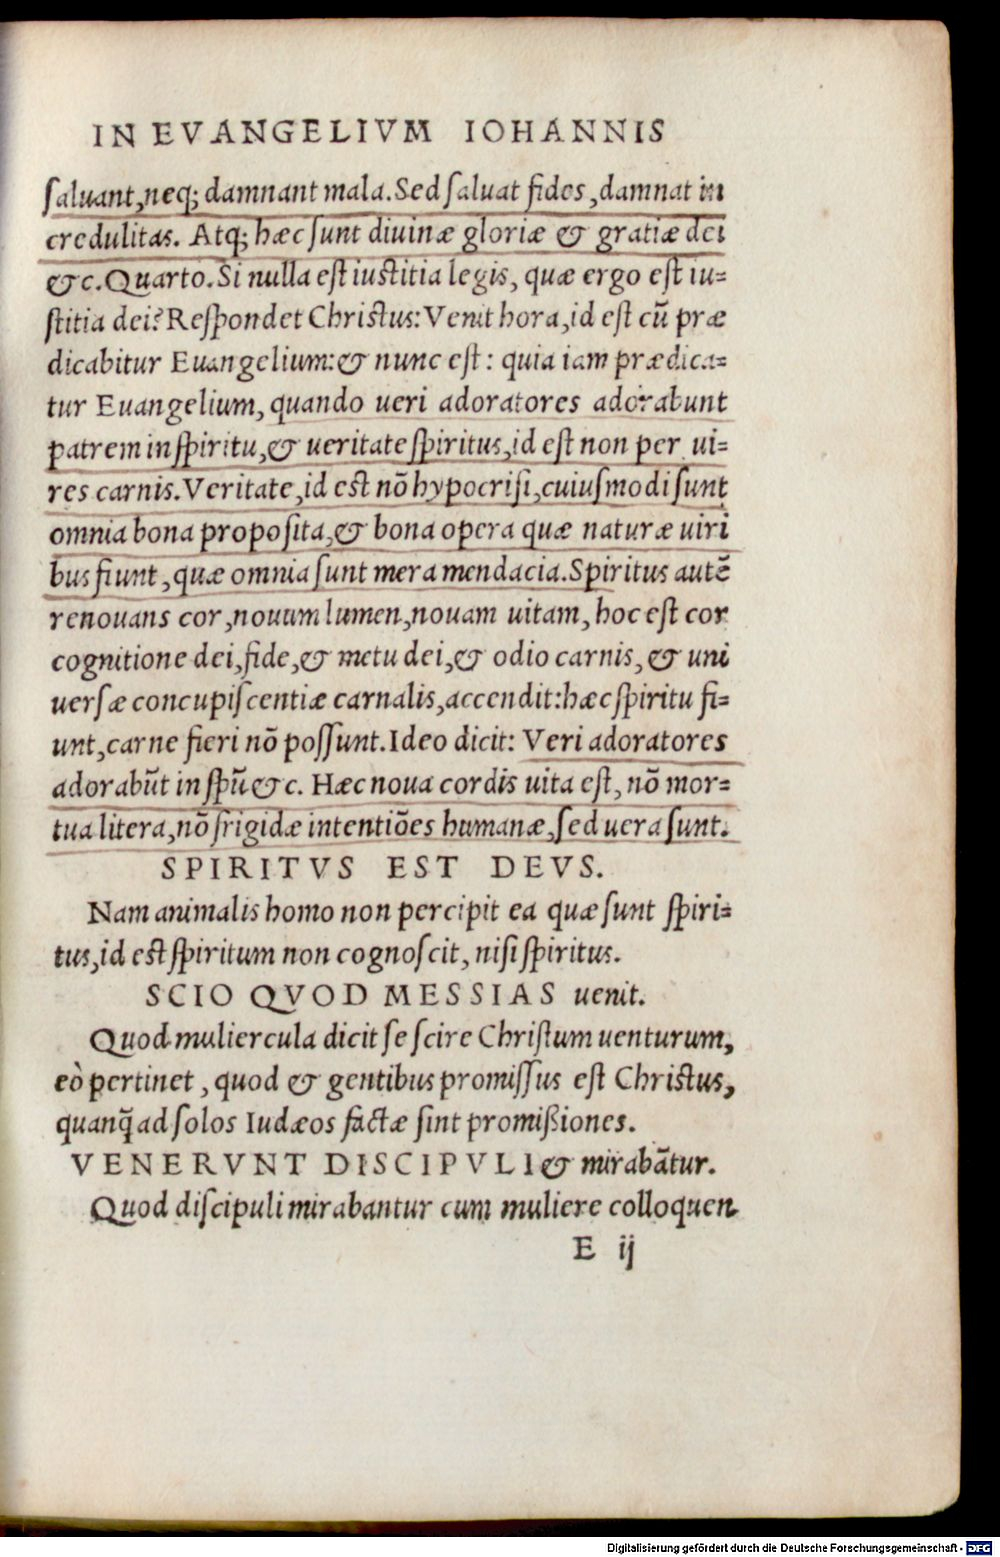 IN EVANGELIVM IOHANNIS
ſaluant, neq; damnant mala. Sed ſaluat fides, damnat in
credulitas. Atq; hæc ſunt diuinæ gloriæ & gratiæ dei
&c. Quarto. Si nulla eſt iuſtitia legis, quæ ergo eſt iu=
ſtitia dei? Reſpondet Chriſtus: Venit hora, id eſt cū præ
dicabitur Euangelium: & nunc eſt: quia iam prædica=
tur Euangelium, quando ueri adoratores adorabunt
patrem in ſpiritu, & ueritate ſpiritus, id eſt non per ui=
res carnis. Veritate, id eſt nō hypocriſi, cuiuſmodi ſunt
omnia bona propoſita, & bona opera quæ naturæ uiri
bus fiunt, quæ omnia ſunt mera mendacia. Spiritus autē
renouans cor, nouum lumen, nouam uitam, hoc eſt cor
cognitione dei, fide, & metu dei, & odio carnis, & uni
uerſæ concupiſcentiæ carnalis, accendit: hæc ſpiritu fi=
unt, carne fieri nō poſſunt. Ideo dicit: Veri adoratores
adorabūt in ſpū &c. Hæc noua cordis uita eſt, nō mor=
tua litera, nō frigidæ intentiōes humanæ, ſed uera ſunt.
SPIRITVS EST DEVS.
Nam animalis homo non percipit ea quæ ſunt ſpiri=
tus, id eſt ſpiritum non cognoſcit, niſi ſpiritus.
SCIO QVOD MESSIAS uenit.
Quod muliercula dicit ſe ſcire Chriſtum uenturum,
eò pertinet, quod & gentibus promiſſus eſt Chriſtus,
quanq̄ ad ſolos Iudæos factæ ſint promißiones.
VENERVNT DISCIPVLI & mirabātur.
Quod diſcipuli mirabantur cum muliere colloquen
E ij
Digitalisierung gefördert durch die Deutsche Forschungsgemeinschaft - DFG